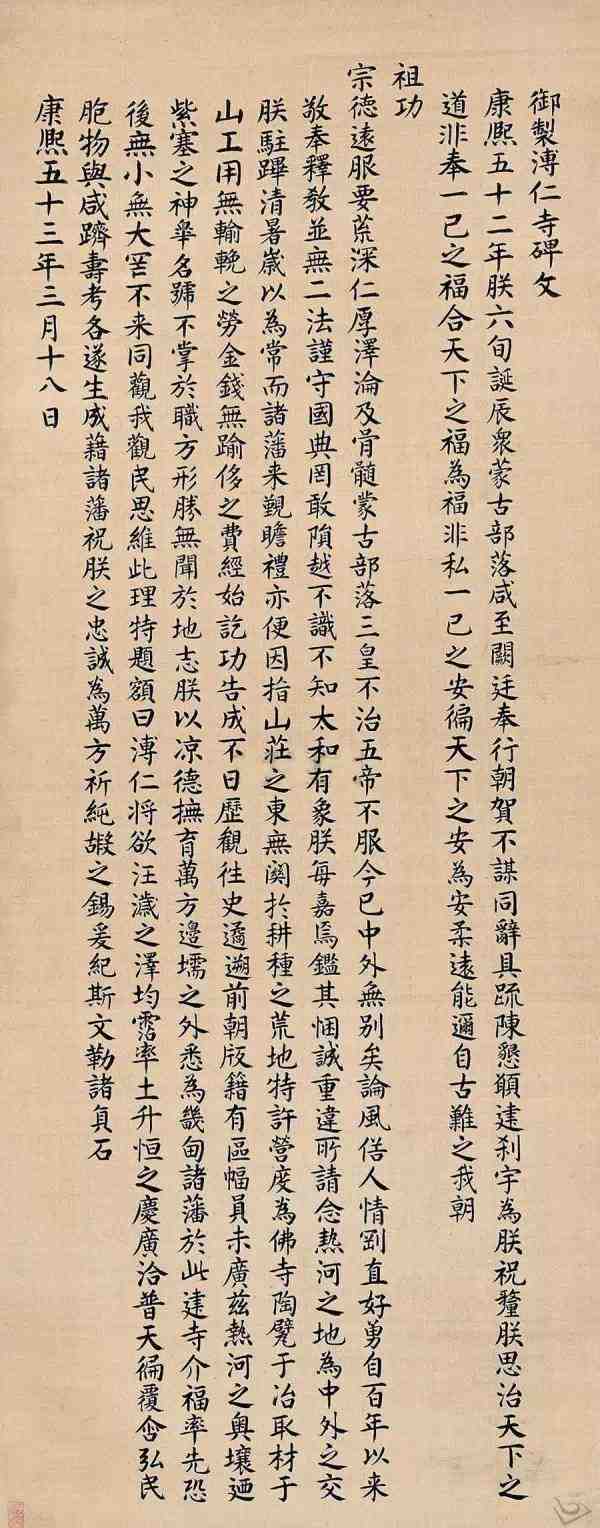 御製溥仁寺碑文
康熙五十二年朕六旬誕辰衆蒙古部落咸至闕廷奉行朝賀不謀同辭具疏陳懇願建刹宇為朕祝釐朕思治天下之
道非奉一己之福合天下之福為福非私一己之安徧天下之安為安柔遠能邇自古難之我朝
祖功
宗德遠服要荒深仁厚澤淪及骨髓蒙古部落三皇不治五帝不服今已中外無别矣論風俗人情剛直好勇自百年以来
敬奉釋教並無二法謹守國典罔敢隕越不識不知太和有象朕每嘉焉鑑其悃誠重違所請念熱河之地為中外之交
朕駐蹕清暑歲以為常而諸藩来覲瞻禮亦便因指山莊之東無関於耕種之荒地特許營度為佛寺陶甓于冶取材于
山工用無輸輓之勞金錢無踰侈之費經始訖功告成不日歷觀往史遹遡前朝版籍有區幅員未廣茲熱河之奥壤廼
紫塞之神皋名號不掌於職方形勝無聞於地志朕以凉德撫育萬方邊壖之外悉為畿甸諸藩於此建寺介福率先恐
後無小無大罔不来同觀我觀民思維此理特題額曰溥仁将欲汪濊之澤均霑率土升恒之慶廣洽普天徧覆含弘民
胞物與咸躋壽考各遂生成藉諸藩祝朕之忠誠為萬方祈純嘏之錫爰紀斯文勒諸貞石
康熙五十三年三月十八日